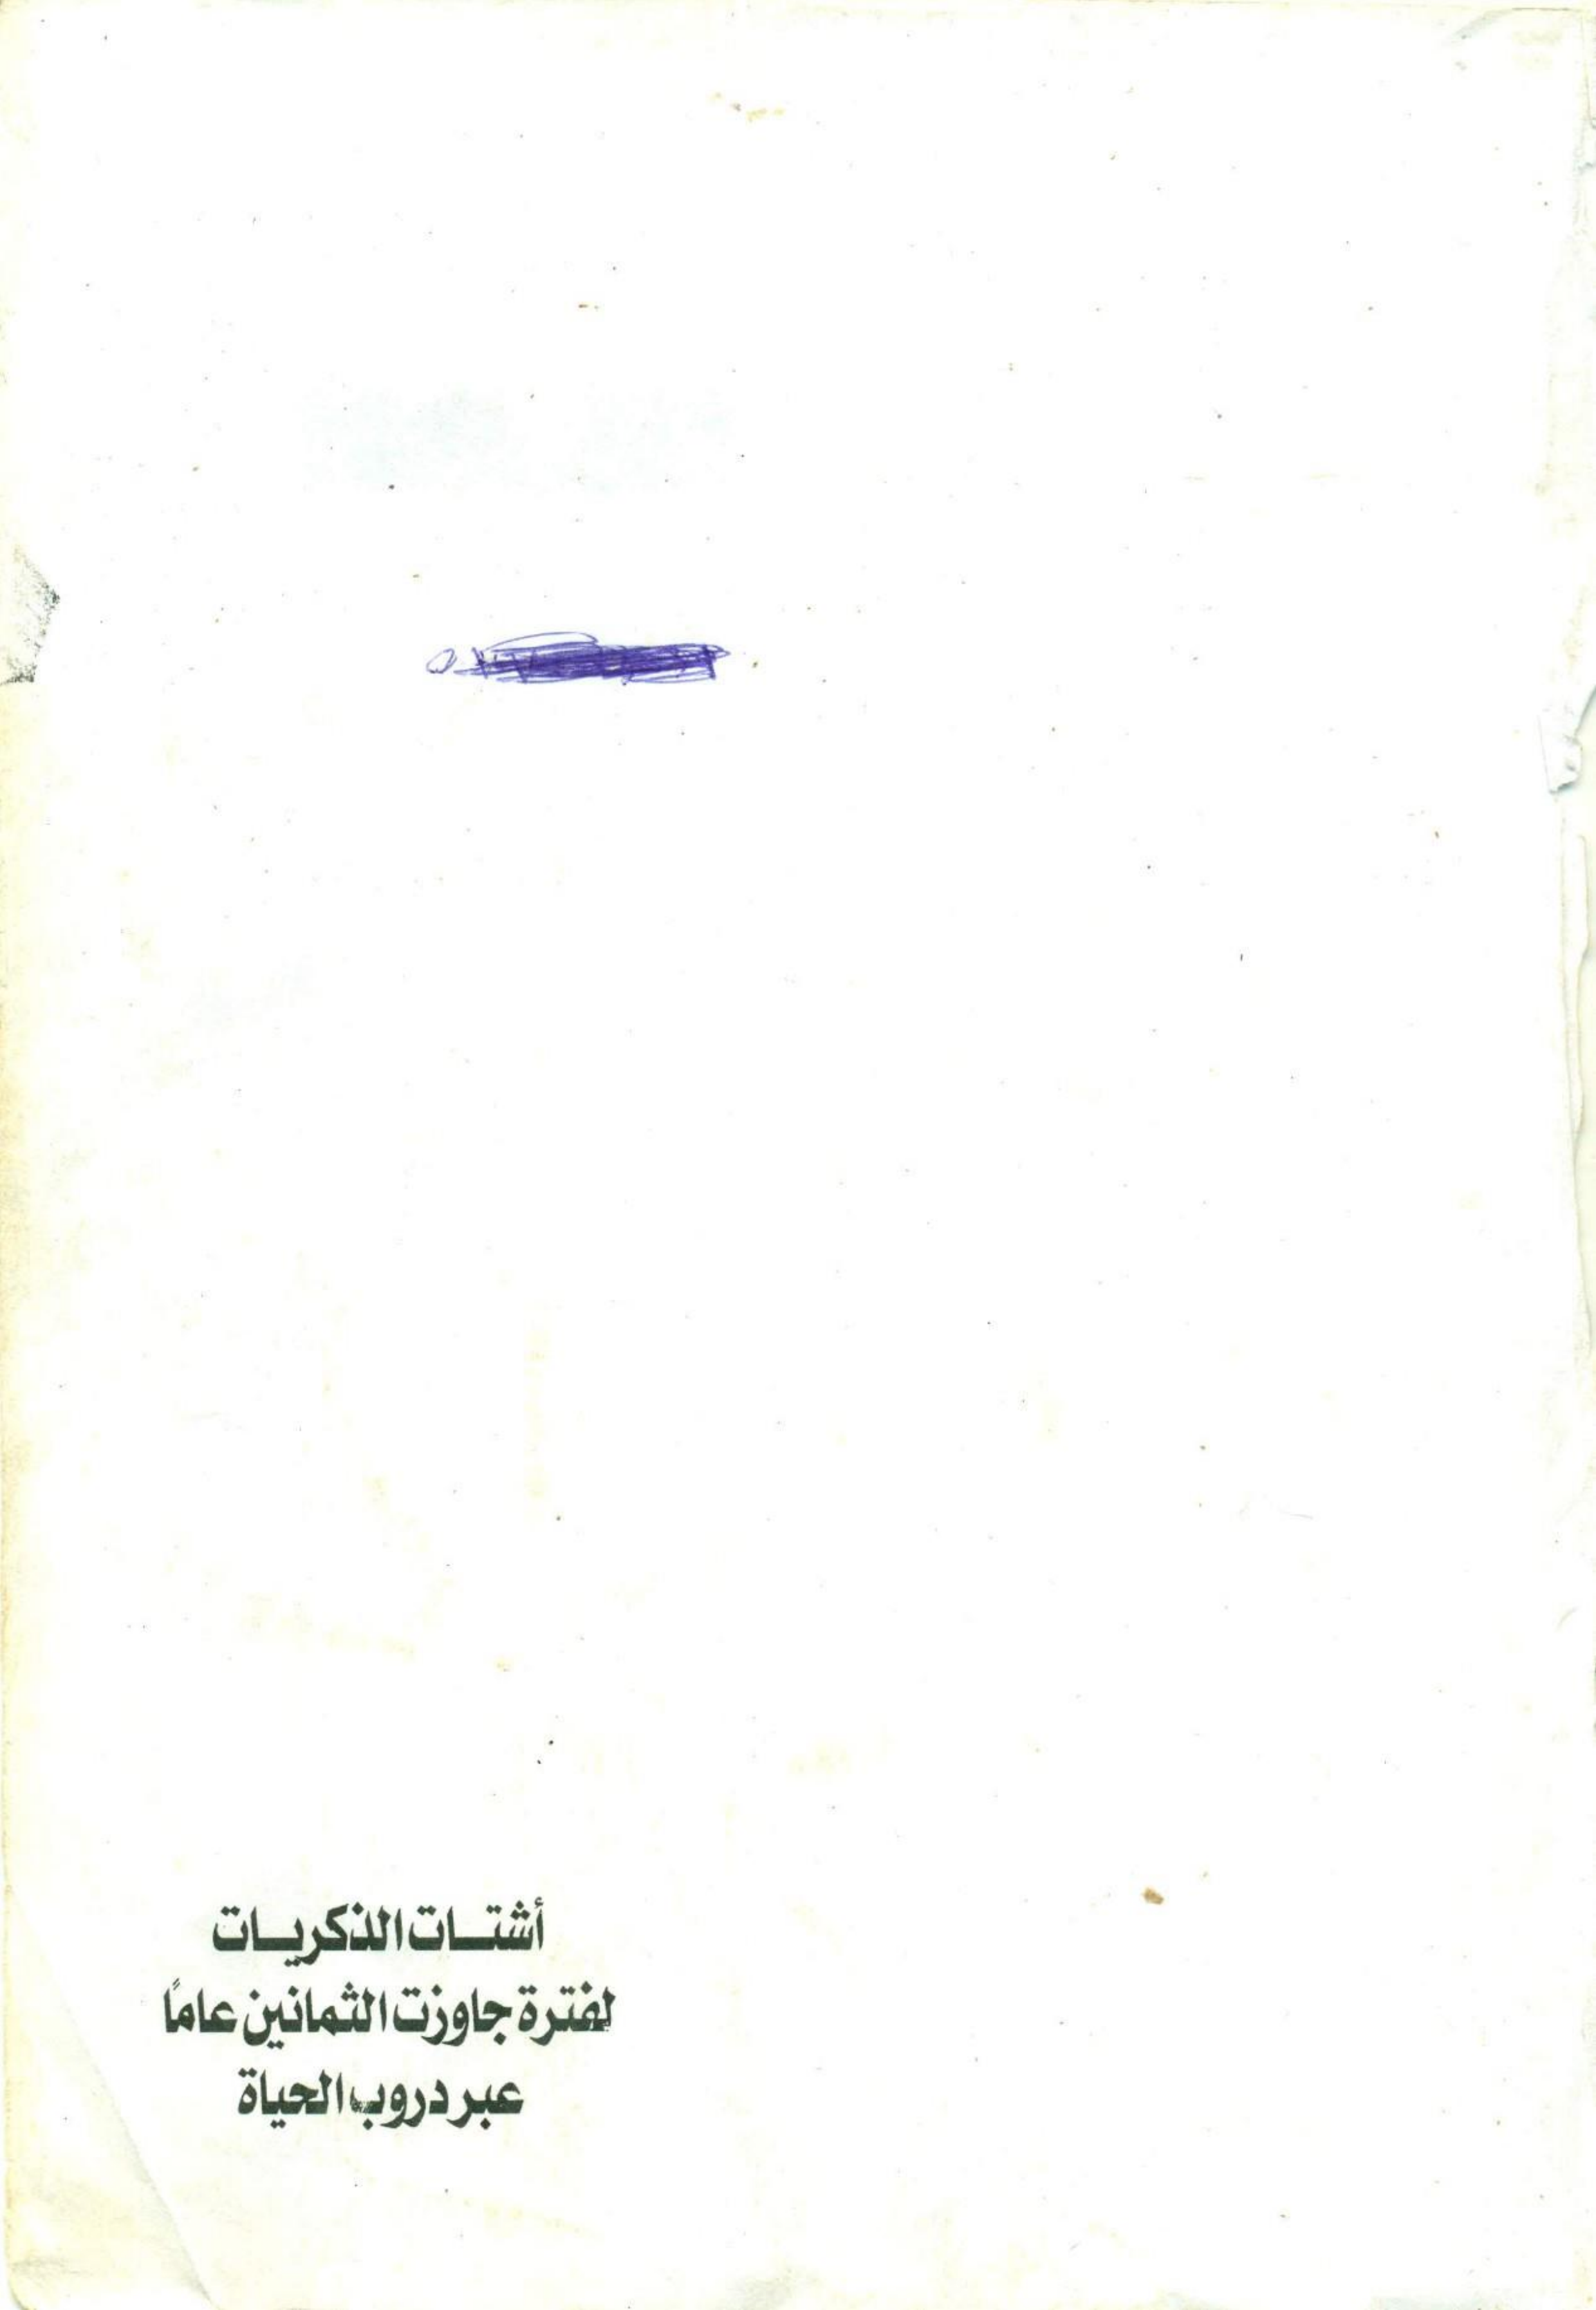 أشتــات الذكريــات
لفترة جاوزت الثمانين عامًا
عبر دروب الحياة